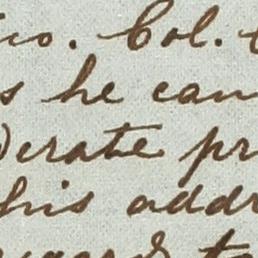 co. Col.
s he can
erate pr
his addr